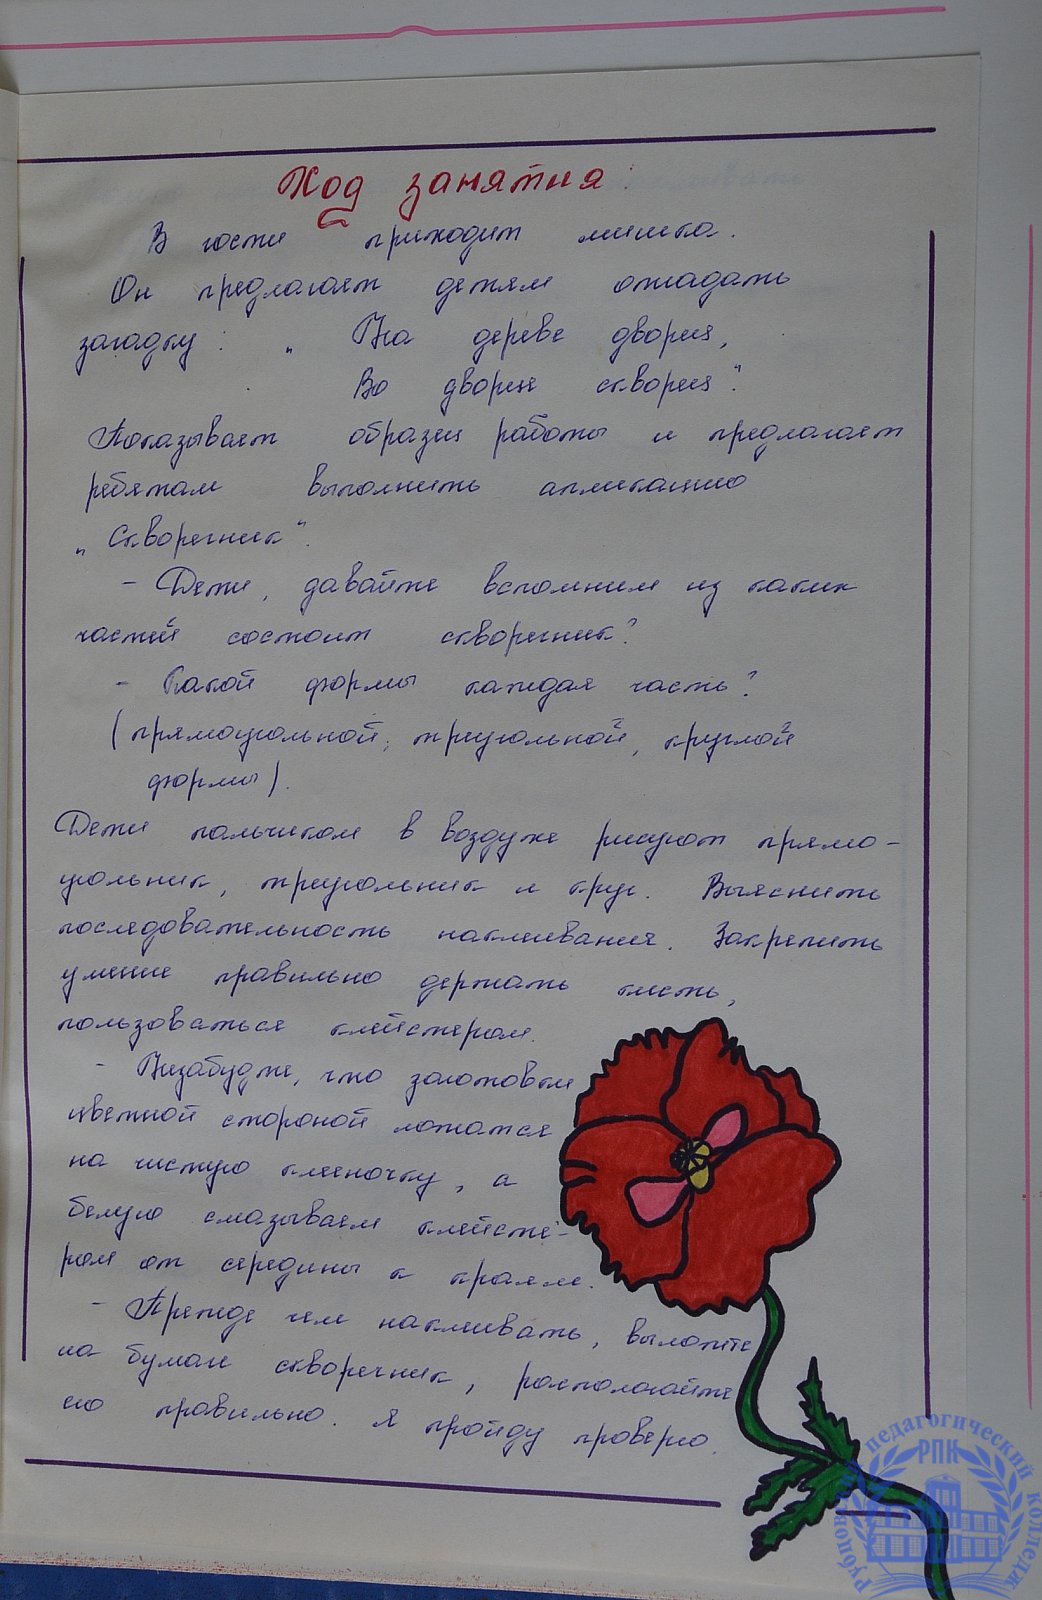 Ход занятия:
В гости приходит мишка.
Он предлагает детям отгадать
загадку: „ На дереве дворец,
Во дворце скворец".
Показывает образец работы и предлагает
ребятам выполнить аппликацию
„Скворечник".
- Дети, давайте вспомним из каких
частей состоит скворечник?
- Какой формы каждая часть?
(прямоугольной, треугольной, круглой
формы).
Дети пальчиком в воздухе рисуют прямо-
угольник, треугольник и круг. Выяснить
последовательность наклеивания. Закрепить
умение правильно держать кисть,
пользоваться клейстером.
- Незабудте, что заготовки
цветной стороной ложатся
на чистую клееночку, а
белую смазываем клейсте-
ром от середины к краям.
- Прежде чем наклеивать, выложите
на бумаге скворечник, располагайте
его правильно. Я пройду проверю.
Рубцовский педагогический колледж
РПК